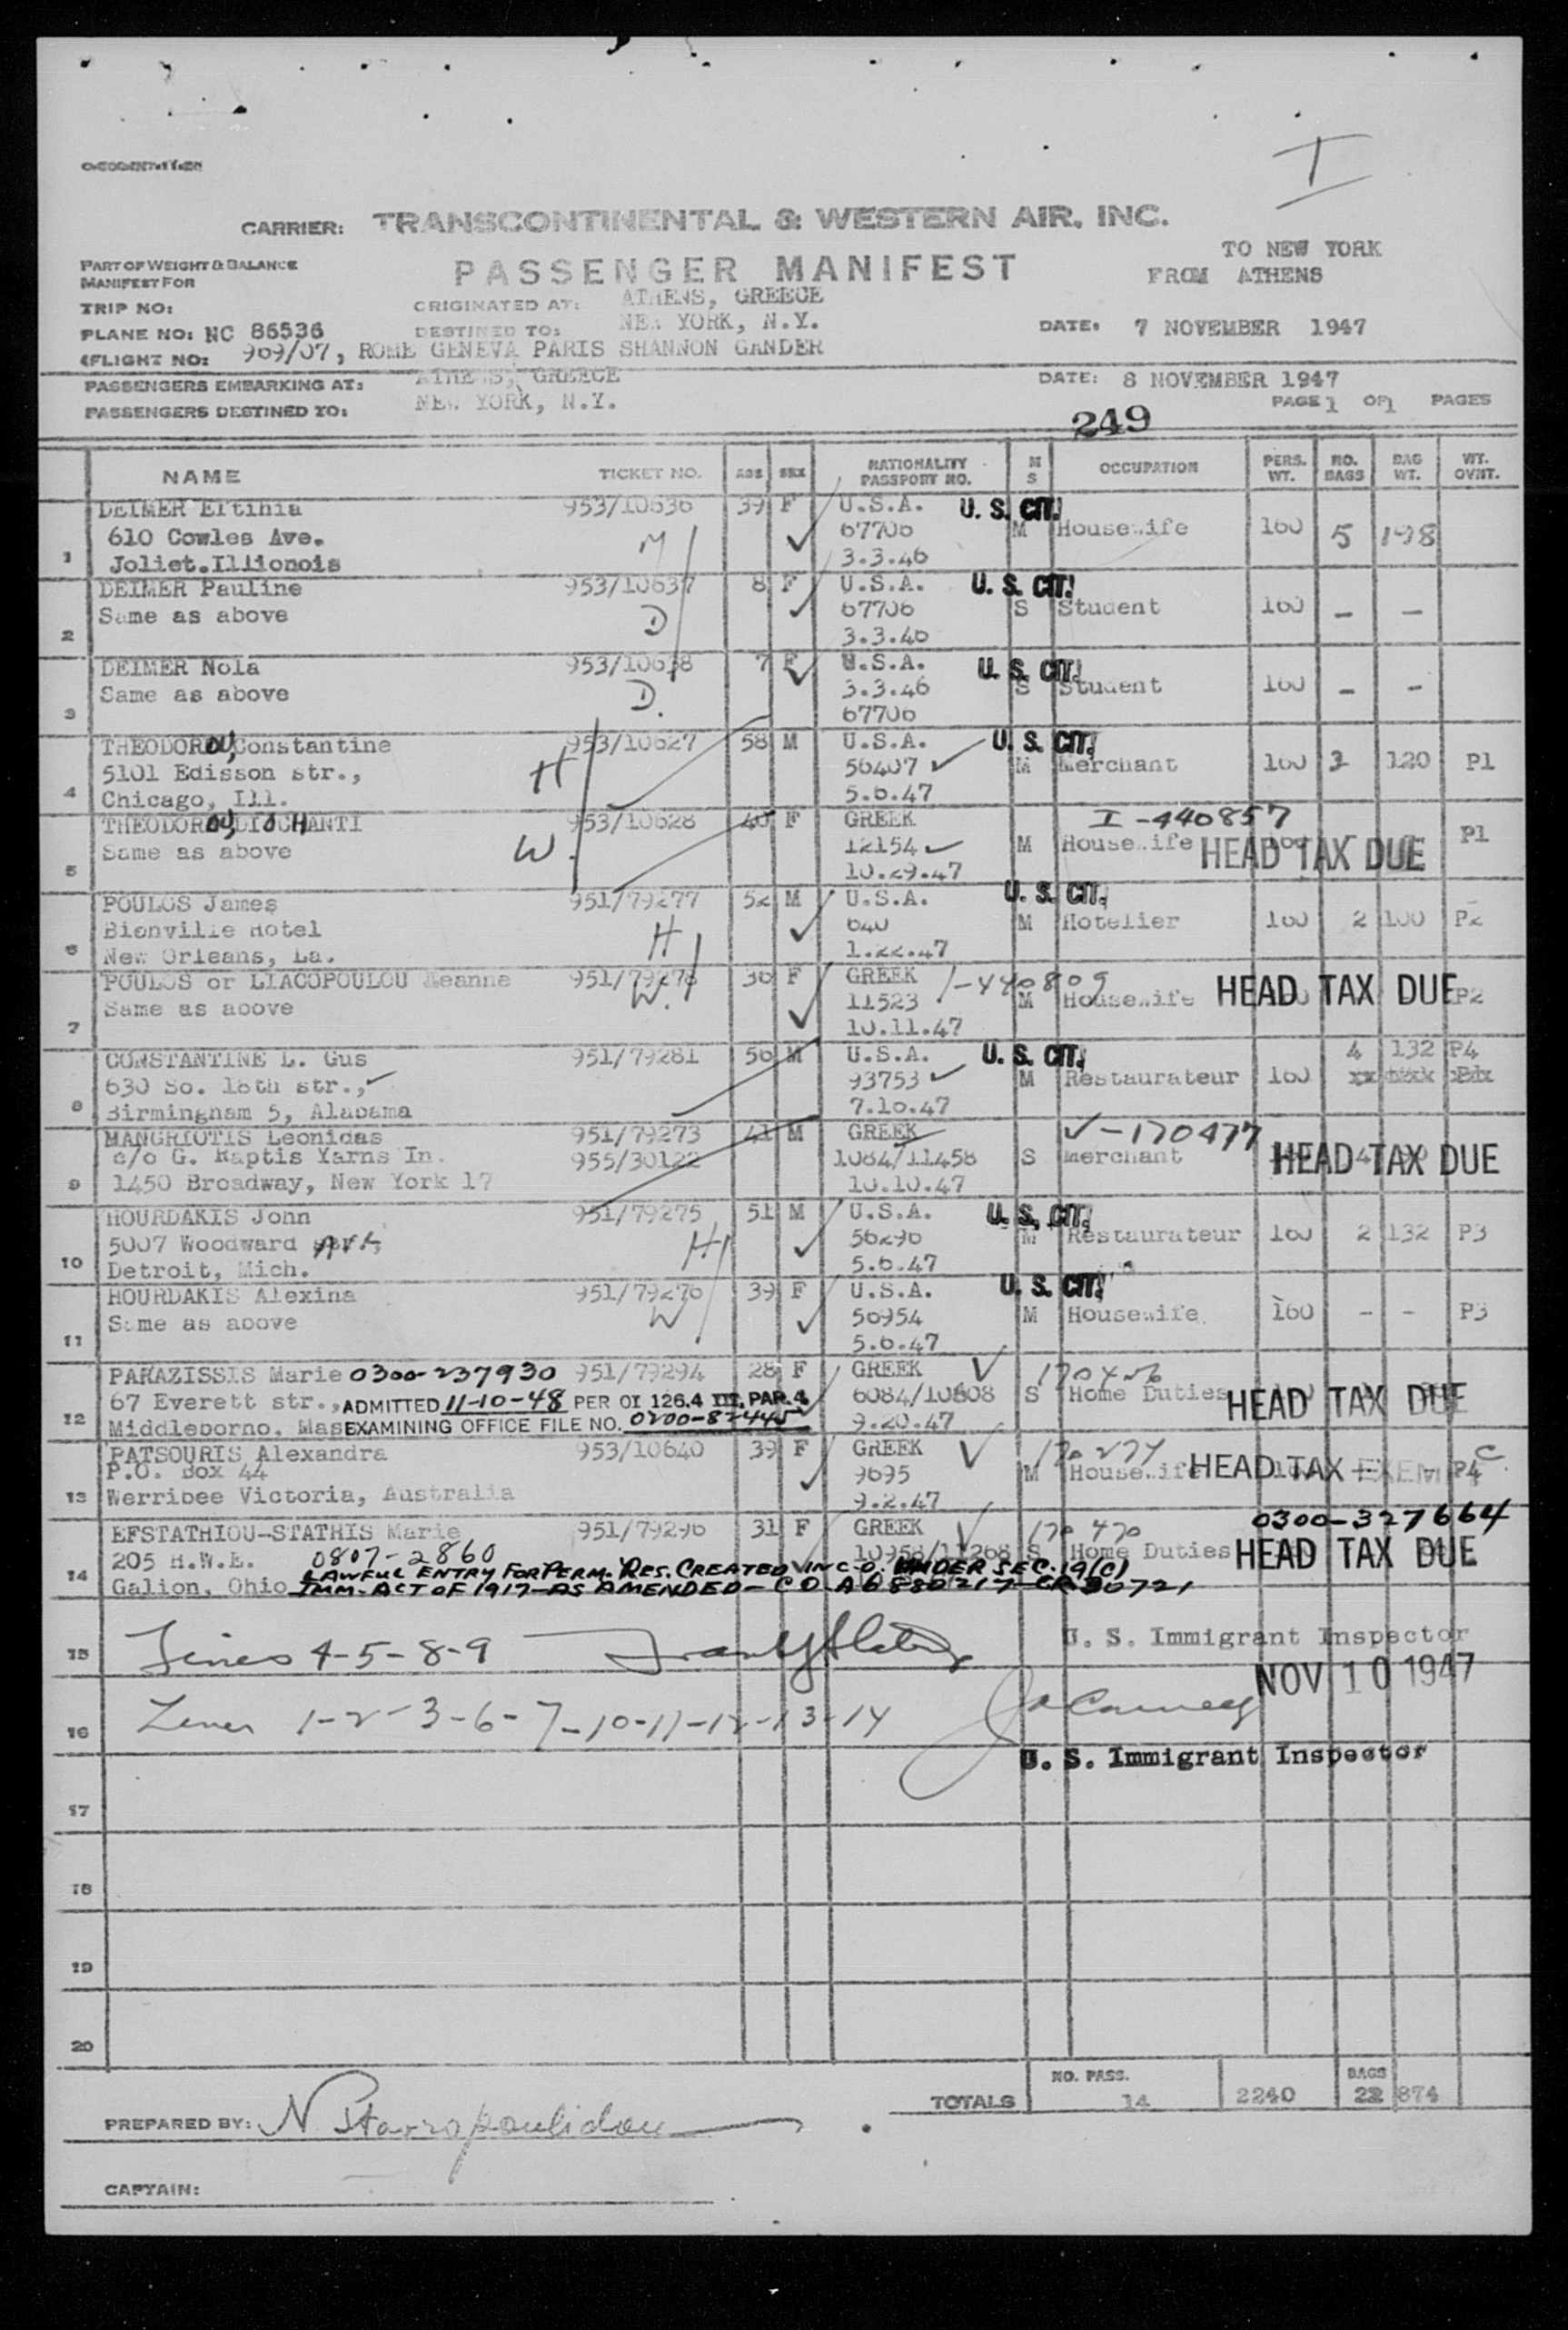 I
CARRIER: TRANSCONTINENTAL & WESTERN AIR, INC.
TO NEW YORK
PART OF WEIGHT & BALANCE
PASSENGER MANIFEST
FROM ATHENS
MANIFEST FOR
TRIP NO:
ORIGINATED AT: ATHENS, GREECE
PLANE NO: NC 86536
DESTINED TO: NEW YORK, N.Y.
DATE: 7 NOVEMBER 1947
FLIGHT NO: 969/07, ROME GENEVA PARIS SHANNON GANDER
PASSENGERS EMBARKING AT: ATHENS, GREECE
DATE: 8 NOVEMBER 1947
PASSENGERS DESTINED TO: NEW YORK, N.Y.
PAGE 1 OF 1 PAGES
249
NAME TICKET NO. AGE SEX NATIONALITY PASSPORT NO. M S OCCUPATION PERS. WT. NO. BAGS BAG WT. WT. OVHT.
DEIMER Eftihia 953/10636 39 F U.S.A. U. S. CIT.
610 Cowles Ave. M 67706 M Housewife 160 5 198
1 Joliet.Illionois 3.3.46
DEIMER Pauline 953/10637 8 F U.S.A. U. S. CIT.
Same as above D 67706 S Student 160 — —
2 3.3.46
DEIMER Nola 953/10638 7 F U.S.A. U. S. CIT.
Same as above D. 3.3.46 S Student 160 — —
3 67706
THEODOROU, Constantine 953/10627 58 M U.S.A. U. S. CIT.
5101 Edisson str., H 56407 M Merchant 160 3 120 P1
4 Chicago, Ill. 5.6.47
THEODOROU, DIOCHANTI 953/10628 40 F GREEK I-440857
Same as above W. 12154 M Housewife HEAD TAX DUE P1
5 10.29.47
POULOS James 951/79277 52 M U.S.A. U. S. CIT.
Bienville Hotel H 640 M Hotelier 160 2 100 P2
6 New Orleans, La. 1.22.47
POULOS or LIACOPOULOU Meanne 951/79278 36 F GREEK I-440809
Same as above W. 11523 M Housewife HEAD TAX DUE P2
7 10.11.47
CONSTANTINE L. Gus 951/79281 56 M U.S.A. U. S. CIT. 4 132 P4
630 So. 18th str., 93753 M Restaurateur 160
8 Birmingham 5, Alabama 7.10.47
MANGRIOTIS Leonidas 951/79273 41 M GREEK V-170477
c/o G. Raptis Yarns In. 955/30122 1084/11458 S Merchant HEAD TAX DUE
9 1450 Broadway, New York 17 10.10.47
HOURDAKIS John 951/79275 51 M U.S.A. U. S. CIT.
5007 Woodward AVE H 56296 M Restaurateur 160 2 132 P3
10 Detroit, Mich. 5.6.47
HOURDAKIS Alexina 951/79276 39 F U.S.A. U. S. CIT.
Same as above W 56954 M Housewife 160 - - P3
11 5.6.47
PARAZISSIS Marie 0300-237930 951/79294 28 F GREEK V 170456
67 Everett str., ADMITTED 11-10-48 PER OI 126.4 III, PAR. 4 6084/10808 S Home Duties HEAD TAX DUE
12 Middleborno, Mas EXAMINING OFFICE FILE NO. 0200-82445 9.20.47
PATSOURIS Alexandra 953/10640 39 F GREEK V 170277
P.O. Box 44 9695 M Housewife HEAD TAX EXEM P4
13 Werribee Victoria, Australia 9.2.47
EFSTATHIOU-STATHIS Marie 951/79296 31 F GREEK V 170470 0300-327664
205 H.W.E. 0807-2860 10958/11268 S Home Duties HEAD TAX DUE
LAWFUL ENTRY FOR PERM. RES. CREATED IN C.O. UNDER SEC. 19(C)
14 Galion, Ohio IMM. ACT OF 1917 AS AMENDED - CO A6880217 CR 30721
15 Lines 4-5-8-9 U. S. Immigrant Inspector
NOV 10 1947
16 Lines 1-2-3-6-7-10-11-12-13-14
U. S. Immigrant Inspector
17
18
19
20
NO. PASS. BAGS
TOTALS 14 2240 22 874
PREPARED BY: N Stavropoulidou
CAPTAIN: